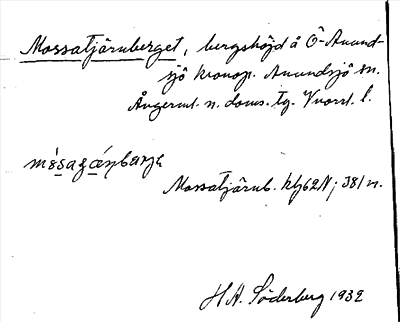 Mossatjärnberget, bergshöjd å Ö-Anund-
sjö kronop. Anundsjö sn.
Ångerml. n. doms. tg. Vnorrl. l.
Mossatjärnb. hfj 62N; 381 n.
H.A. Söderberg 1932